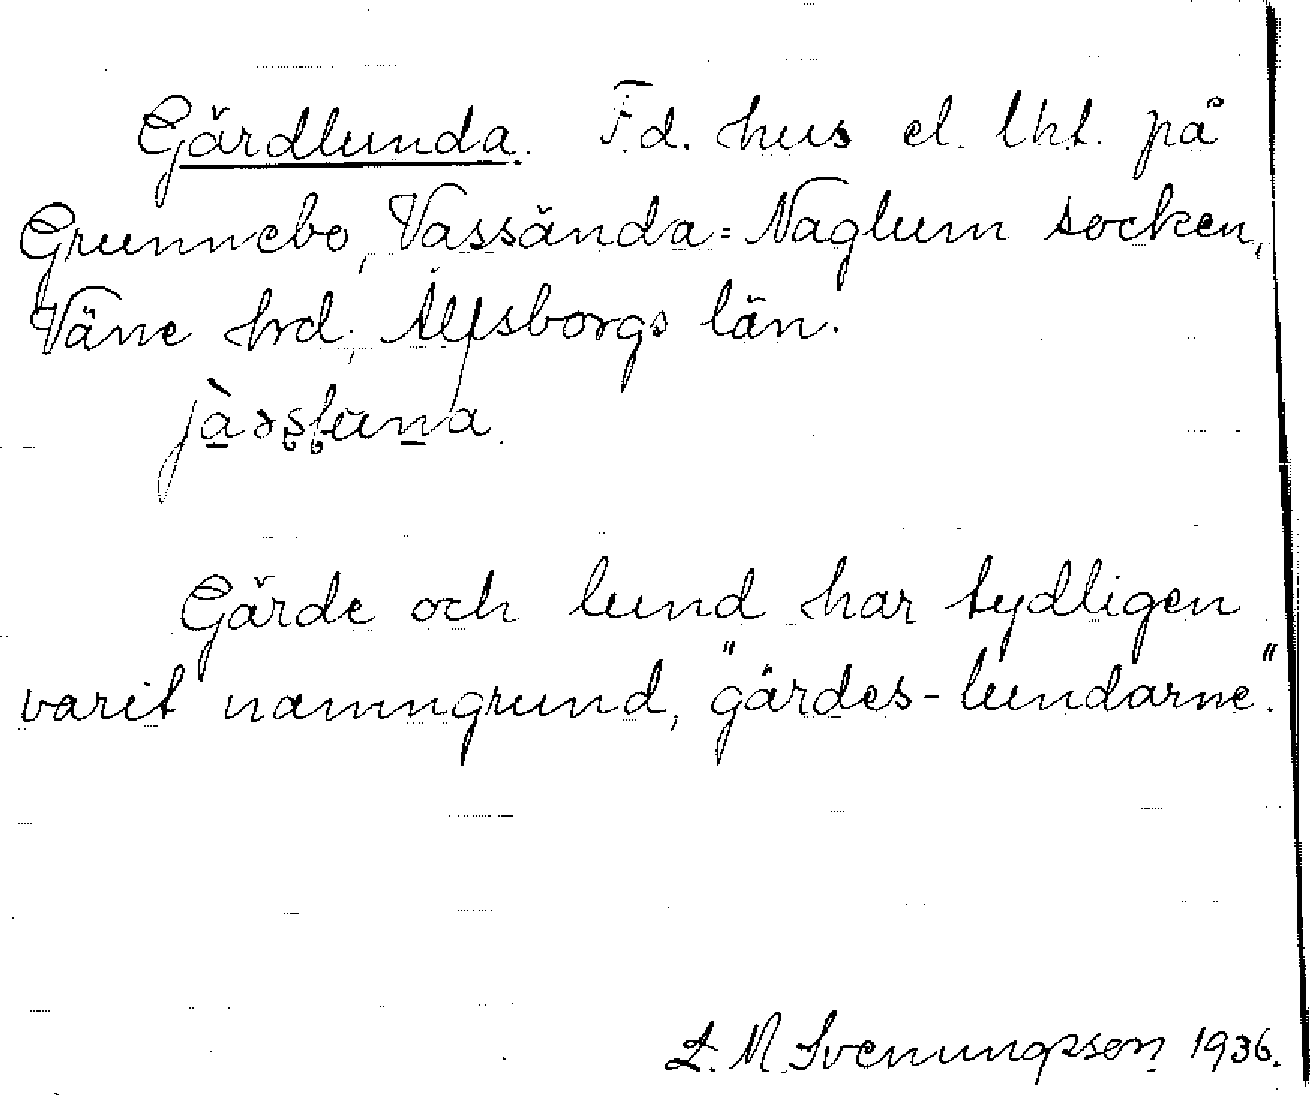 Gärdlunda. F.d. hus el. lht. på
Grunnebo, Vassända=Naglum socken,
Väne hrd, Älfsborgs län.
Gärde och lund har tydligen
varit namngrund, "gärdes-lundarne".
L. M. Svenungsson 1936.